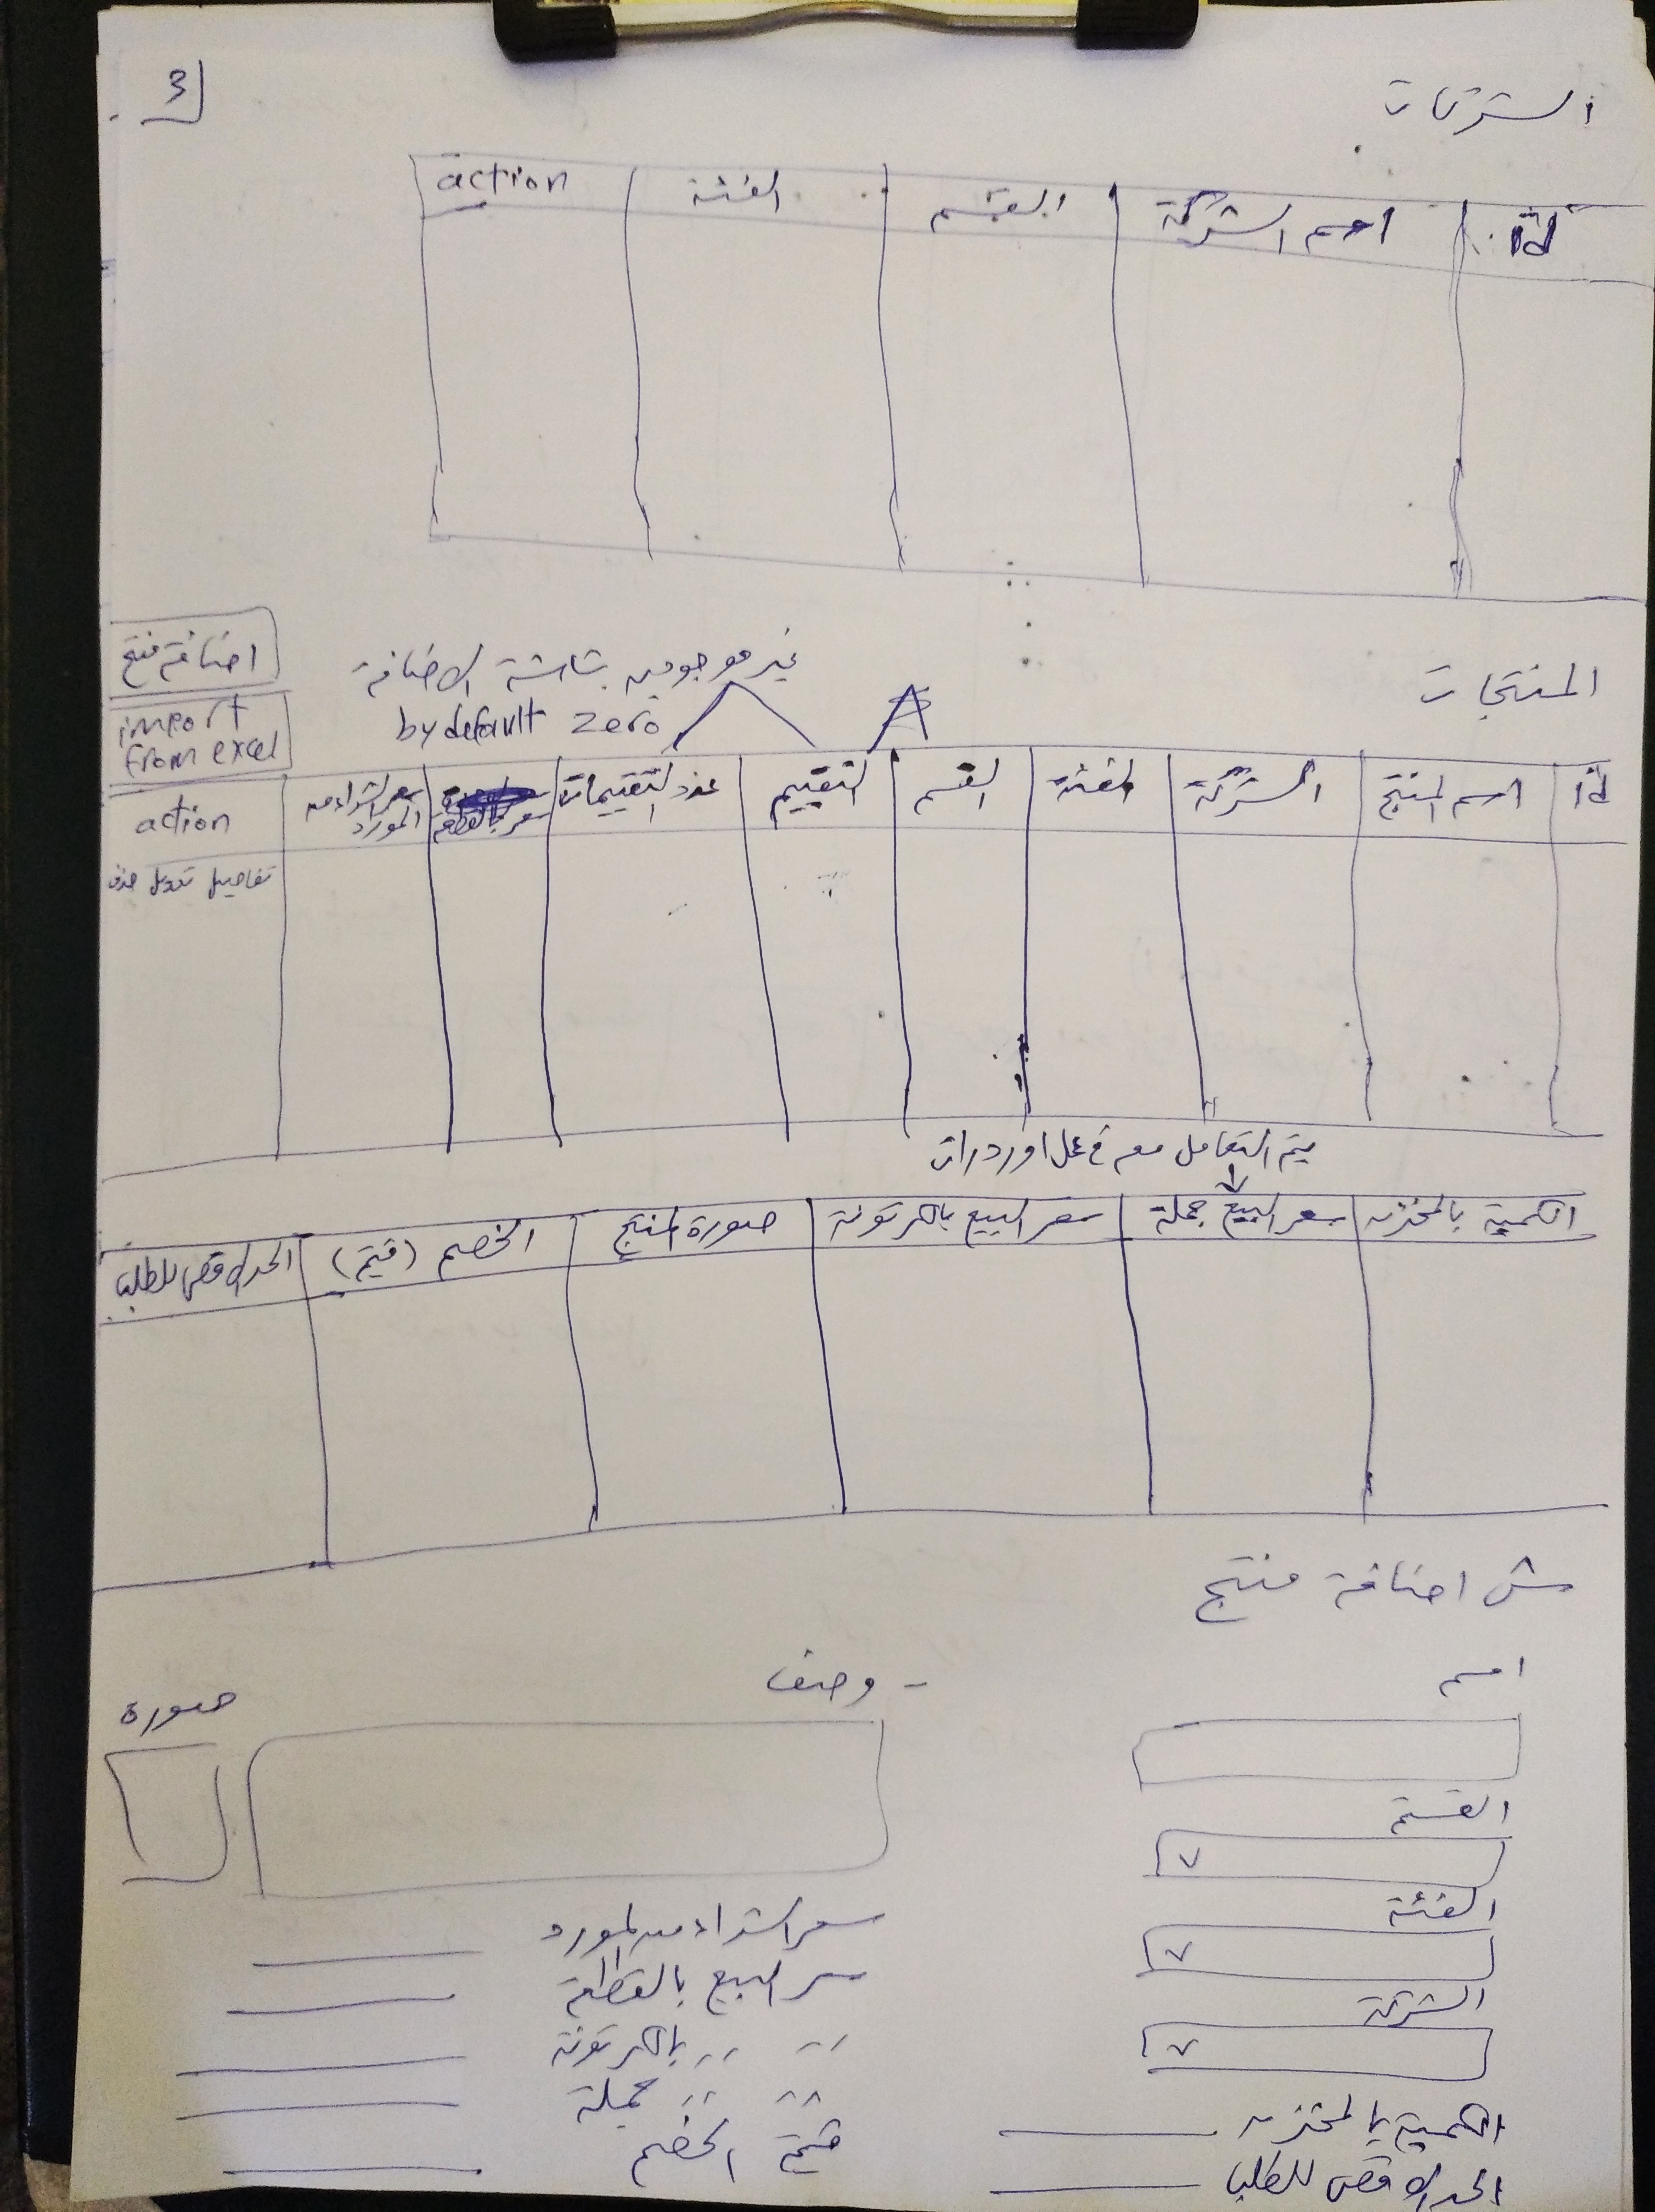 3
الشركات
id اسم الشركة القسم الفئة action
اضافة منتج
import
from excel
المنتجات
غير موجودين بشاشة الاضافة
by default zero
id اسم المنتج الشركة الفئة القسم التقييم عدد التقييمات سعر بالقطعة سعر الشراء من المورد action
تفاصيل تعديل حذف
يتم التعامل معه في عمل اوردرات
الكمية بالمخزن سعر البيع جملة سعر البيع بالكرتونة صورة المنتج الخصم (قيمة) الحد الاقصى للطلب
ش اضافة منتج
اسم
- وصف
صورة
القسم
الفئة
الشركة
الكمية بالمخزن
الحد الاقصى للطلب
سعر الشراء من المورد
سعر البيع بالقطعة
〃 〃 بالكرتونة
〃 〃 جملة
قيمة الخصم